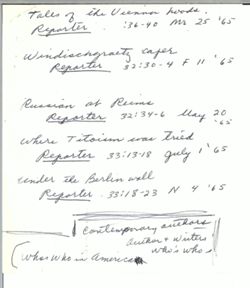 Tales of the Vienna woods.
Reporter :36-40 Mr 25 '65
Windischgraetz caper
Reporter 32:30-4 F 11 '65
Russian at Reims
Reporter 32:34-6 May 20 '65
Where Titoism was tried
Reporter 33:13-18 July 1 '65
Under the Berlin wall
Reporter 33:18-23 N 4 '65
Contemporary authors
Author & Writers
Who's Who
Who's Who in America